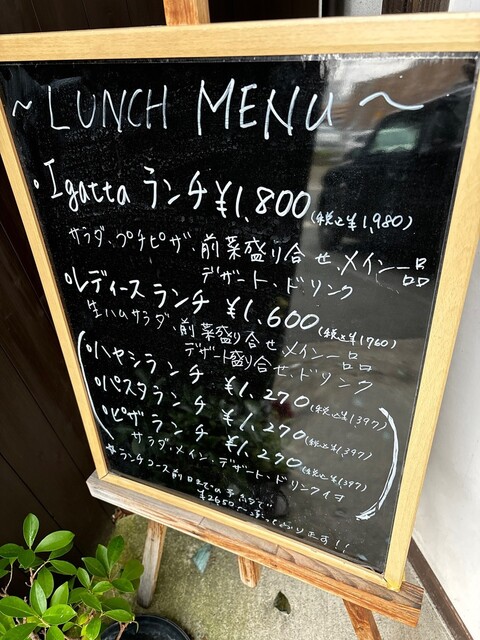 ~ LUNCH MENU ~
・Igatta ランチ ¥1,800 (税込¥1,980)
サラダ、プチピザ、前菜盛り合せ、メイン一品
デザート、ドリンク
・レディースランチ ¥1,600 (税込¥1760)
生ハムサラダ、前菜盛り合せ、メイン一品
デザート盛り合せ、ドリンク
・ハヤシランチ ¥1,270 (税込¥1,397)
・パスタランチ ¥1,270 (税込¥1,397)
・ピザランチ ¥1,270 (税込¥1,397)
サラダ・メイン・デザート・ドリンク
ランチコース前日までの予
¥2650〜承っております!!